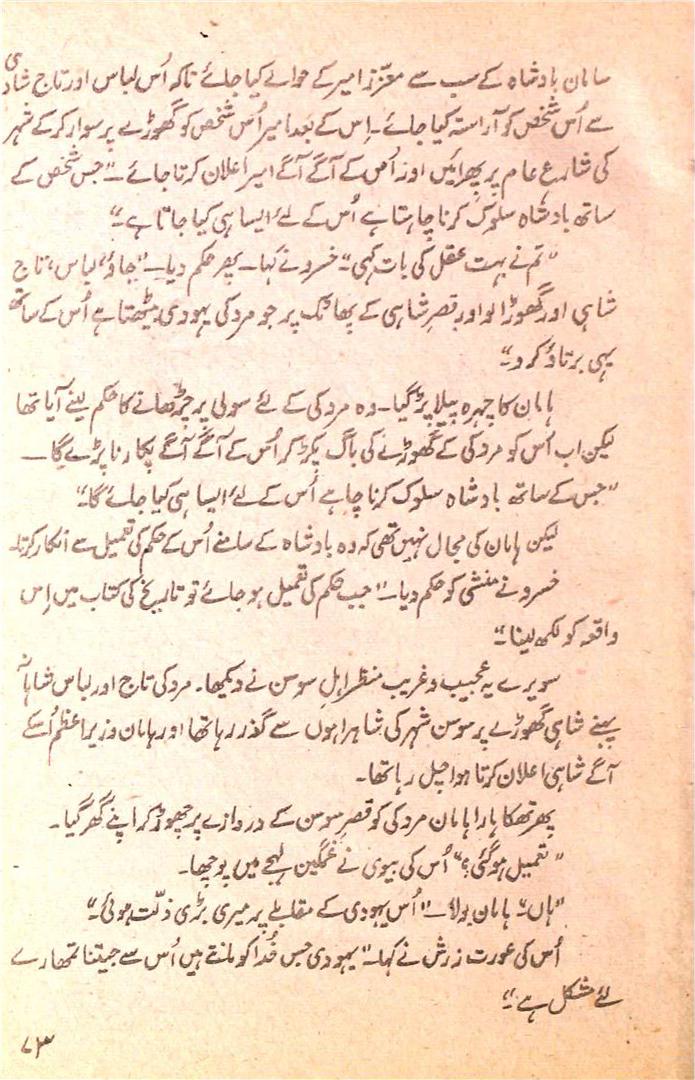 سامان بادشاہ کے سب سے معزّز امیر کے حوالے کیا جائے تاکہ اُس لباس اور تاج شاہی
سے اُس شخص کو آراستہ کیا جائے۔ اِس کے بعد امیر اُس شخص کو گھوڑے پر سوار کرکے شہر
کی شارع عام پر پھرائیں اور اُس کے آگے آگے امیر اعلان کرتا جائے۔ "جس شخص کے
ساتھ بادشاہ سلوک کرنا چاہتا ہے اُس کے لئے ایسا ہی کیا جاتا ہے۔"
"تم نے بہت عقل کی بات کہی۔" خسرو نے کہا۔ پھر حکم دیا۔ "جاؤ، لباس، تاج
شاہی اور گھوڑا لو اور قصرِ شاہی کے پھاٹک پر جو مردکی یہودی بیٹھتا ہے اُس کے ساتھ
یہی برتاؤ کرو۔"
ہامان کا چہرہ پیلا پڑ گیا۔ وہ مردکی کے لئے سولی پر چڑھانے کا حکم لینے آیا تھا
لیکن اب اُس کو مردکی کے گھوڑے کی باگ پکڑ کر اُس کے آگے آگے پکارنا پڑے گا۔
"جس کے ساتھ بادشاہ سلوک کرنا چاہے اُس کے لئے ایسا ہی کیا جائے گا۔"
لیکن ہامان کی مجال نہیں تھی کہ وہ بادشاہ کے سامنے اُس کے حکم کی تعمیل سے انکار کرتا۔
خسرو نے منشی کو حکم دیا۔ "جب حکم کی تعمیل ہو جائے تو تاریخ کی کتاب میں اِس
واقعہ کو لکھ لینا۔"
سویرے یہ عجیب و غریب منظر اہلِ سوسن نے دیکھا۔ مردکی تاج اور لباس شاہانہ
پہنے شاہی گھوڑے پر سوسن شہر کی شاہراہوں سے گذر رہا تھا اور ہامان وزیر اعظم اُسکے
آگے شاہی اعلان کرتا ہوا چل رہا تھا۔
پھر تھکا ہارا ہامان مردکی کو قصرِ سوسن کے دروازے پر چھوڑ کر اپنے گھر گیا۔
"تعمیل ہو گئی؟" اُس کی بیوی نے غمگین لہجے میں پوچھا۔
"ہاں۔" ہامان بولا۔ "اُس یہودی کے مقابلے پر میری بڑی ذلّت ہوئی۔"
اُس کی عورت زرش نے کہا۔ "یہودی جس خُدا کو مانتے ہیں اُس سے جیتنا تمھارے
لئے مشکل ہے۔"
۷۳